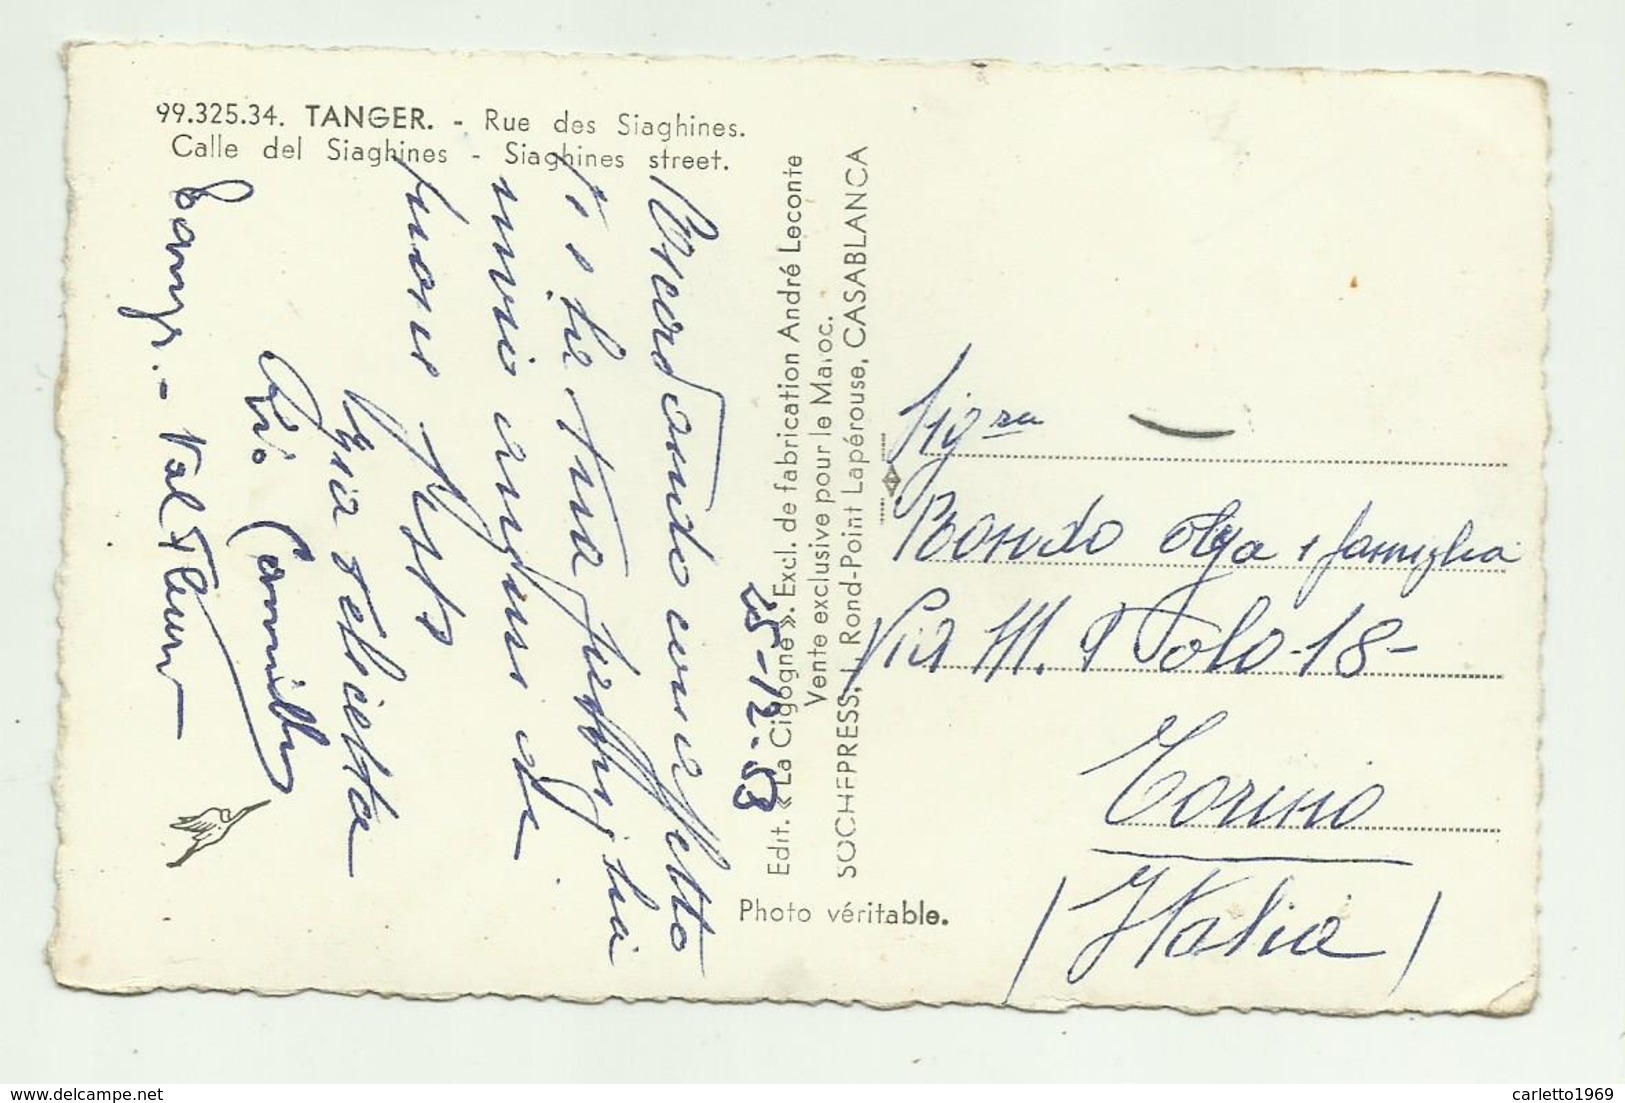 99.325.34. TANGER. - Rue des Siaghines.
Calle del Siaghines - Siaghines street.
25-12-53
Ricordando con affetto
te e la tua famiglia
invio auguri di
buone feste
Zia Felicetta
Zio Camillo
Tangeri - Val Fleuri
Edit. « La Cigogne ». Excl. de fabrication André Leconte
Vente exclusive pour le Maroc.
SOCHEPRESS, 1, Rond-Point Lapérouse, CASABLANCA
Photo véritable.
Sig.ra
Rondo Olga e famiglia
Via M. Polo-18-
Torino
(Italia)
carletto1969
delcampe.net